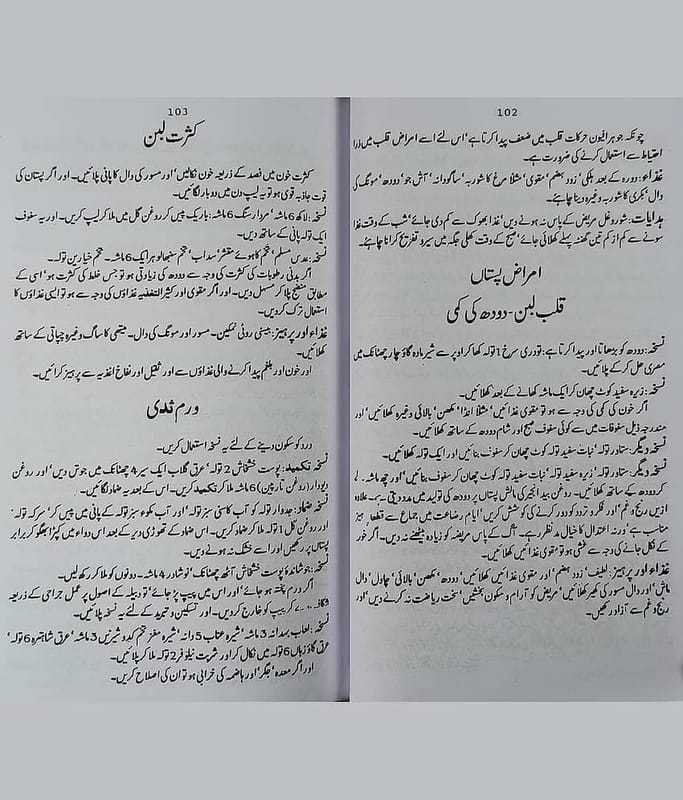 102
چونکہ جوہر افیون حرکات قلب میں ضعف پیدا کرتا ہے‘ اس لئے اسے امراض قلب میں ذرا
احتیاط سے استعمال کرنے کی ضرورت ہے۔
غذاء: دورہ کے بعد ہلکی‘ زود ہضم‘ مقوی‘ مثلاً مرغ کا شوربہ‘ ساگودانہ‘ آش جو‘ دودھ‘ مونگ کی
دال‘ بکری کا شوربہ وغیرہ دینا چاہئے۔
ہدایات: شور و غل مریض کے پاس نہ ہونے دیں‘ غذا بھوک سے کم دی جائے‘ شب کے وقت غذا
سونے سے کم از کم تین گھنٹہ پہلے کھلائی جائے‘ صبح کے وقت کھلی جگہ میں سیر و تفریح کرانا چاہئے۔
امراض پستاں
قلب لبن - دودھ کی کمی
نسخہ: دودھ کو بڑھاتا اور پیدا کرتا ہے: تودری سرخ 1 تولہ کھا کر اوپر سے شیر مادہ گاؤ چار چھٹانک میں
مصری حل کر کے پلائیں۔
نسخہ: زیرہ سفید کوٹ چھان کر ایک ماشہ کھانے کے بعد کھلائیں۔
اگر خون کی کمی کی وجہ سے ہو تو مقوی غذائیں‘ مثلاً انڈا‘ مکھن‘ بالائی وغیرہ کھلائیں‘ اور
مندرجہ ذیل سفوفات میں سے کوئی سفوف صبح اور شام دودھ کے ساتھ کھلائیں۔
نسخہ دیگر: ستاور تولہ‘ نبات سفید تولہ کوٹ چھان کر سفوف بنائیں اور ایک تولہ کھلائیں۔
نسخہ دیگر: ستاور تولہ‘ زیرہ سفید تولہ‘ نبات سفید تولہ کوٹ چھان کر سفوف بنائیں‘ اور چھ ماشہ
کر دودھ کے ساتھ کھلائیں۔ روغن بید انجیر کی مالش پستاں پر دودھ کی تولید میں مدد دیتی ہے۔ علاوہ
ازیں رنج و غم‘ اور فکر و تردد کو دور کرنے کی کوشش کریں‘ ایام رضاعت میں جماع سے قطعاً پرہیز
مناسب ہے‘ ورنہ اعتدال کا خیال مدنظر رہے۔ آگ کے پاس مریضہ کو زیادہ بیٹھنے نہ دیں۔ اگر خون
کے نکل جانے کی وجہ سے غشی ہو تو مقوی غذائیں کھلائیں۔
غذاء اور پرہیز: لطیف‘ زود ہضم‘ اور مقوی غذائیں کھلائیں‘ دودھ‘ مکھن‘ بالائی‘ چاول‘ دال
ماش‘ اور دال مسور کی کھیر کھلائیں‘ مریض کو آرام و سکون بخشیں‘ سخت ریاضت نہ کرنے دیں‘ اور
رنج و غم سے آزاد رکھیں۔
103
کثرت لبن
کثرت خون میں فصد کے ذریعہ خون نکالیں‘ اور مسور کی دال کا پانی پلائیں۔ اور اگر پستان کی
قوت جاذبہ قوی ہو تو یہ لیپ دن میں دو بار لگائیں۔
نسخہ: لاکھ 6 ماشہ‘ مردار سنگ 6 ماشہ: باریک پیس کر روغن گل میں ملا کر لیپ کریں۔ اور یہ سفوف
ایک تولہ پانی کے ساتھ دیں۔
نسخہ: عدس مسلم‘ تخم کاہوئے مقشر‘ سداب‘ تخم سنبھالو ہر ایک 6 ماشہ۔ تخم خیارین تولہ۔
اگر بدنی رطوبات کی کثرت کی وجہ سے دودھ کی زیادتی ہو تو جس خلط کی کثرت ہو‘ اسی کے
مطابق منضج پلا کر مسہل دیں۔ اور اگر مقوی اور کثیر التغذیہ غذاؤں کی وجہ سے ہو تو ایسی غذاؤں کا
استعمال ترک کر دیں۔
غذاء اور پرہیز: بیسنی روٹی نمکین۔ مسور اور مونگ کی دال۔ میتھی کا ساگ وغیرہ چپاتی کے ساتھ
کھلائیں۔
اور خون اور بلغم پیدا کرنے والی غذاؤں سے اور ثقیل اور نفاخ اغذیہ سے پرہیز کرائیں۔
ورم ثدی
درد کو سکون دینے کے لئے یہ نسخہ استعمال کریں۔
نسخہ تکمید: پوست خشخاش 2 تولہ‘ عرق گلاب ایک سیر 4 چھٹانک میں جوش دیں‘ اور روغن
دیودار (روغن تارپین) 6 ماشہ ملا کر تکمید کریں۔ اس کے بعد یہ ضماد لگائیں۔
نسخہ ضماد: جدوار تولہ کو آب کاسنی سبز تولہ‘ اور آب مکوء سبز تولہ کے پانی میں پیس کر‘ سرکہ تولہ
اور روغن گل 1 تولہ ملا کر ضماد کریں۔ اس ضماد کے تھوڑی دیر کے بعد اس دواء میں کپڑا بھگو کر برابر
پستان پر رکھیں اور اسے خشک نہ ہونے دیں۔
نسخہ: جوشاندۂ پوست خشخاش آٹھ چھٹانک‘ نوشادر 4 ماشہ۔ دونوں کو ملا کر رکھ لیں۔
اگر ورم پختہ ہو جائے‘ اور اس میں پیپ پڑ جائے‘ تو دبیلہ کے اصول پر عمل جراحی کے ذریعہ
شگاف دے کر پیپ کو خارج کر دیں۔ اور تسکین و تبرید کے لئے یہ نسخہ پلائیں۔
نسخہ: لعاب بہدانہ 3 ماشہ‘ شیرہ عناب 5 دانہ‘ شیرہ مغز تخم کدو شیریں 3 ماشہ‘ عرق شاہترہ 6 تولہ‘
عرق گاؤزباں 6 تولہ میں نکال کر اور شربت نیلوفر 2 تولہ ملا کر پلائیں۔
اور اگر معدہ‘ جگر‘ اور ہاضمہ کی خرابی ہو تو ان کی اصلاح کریں۔